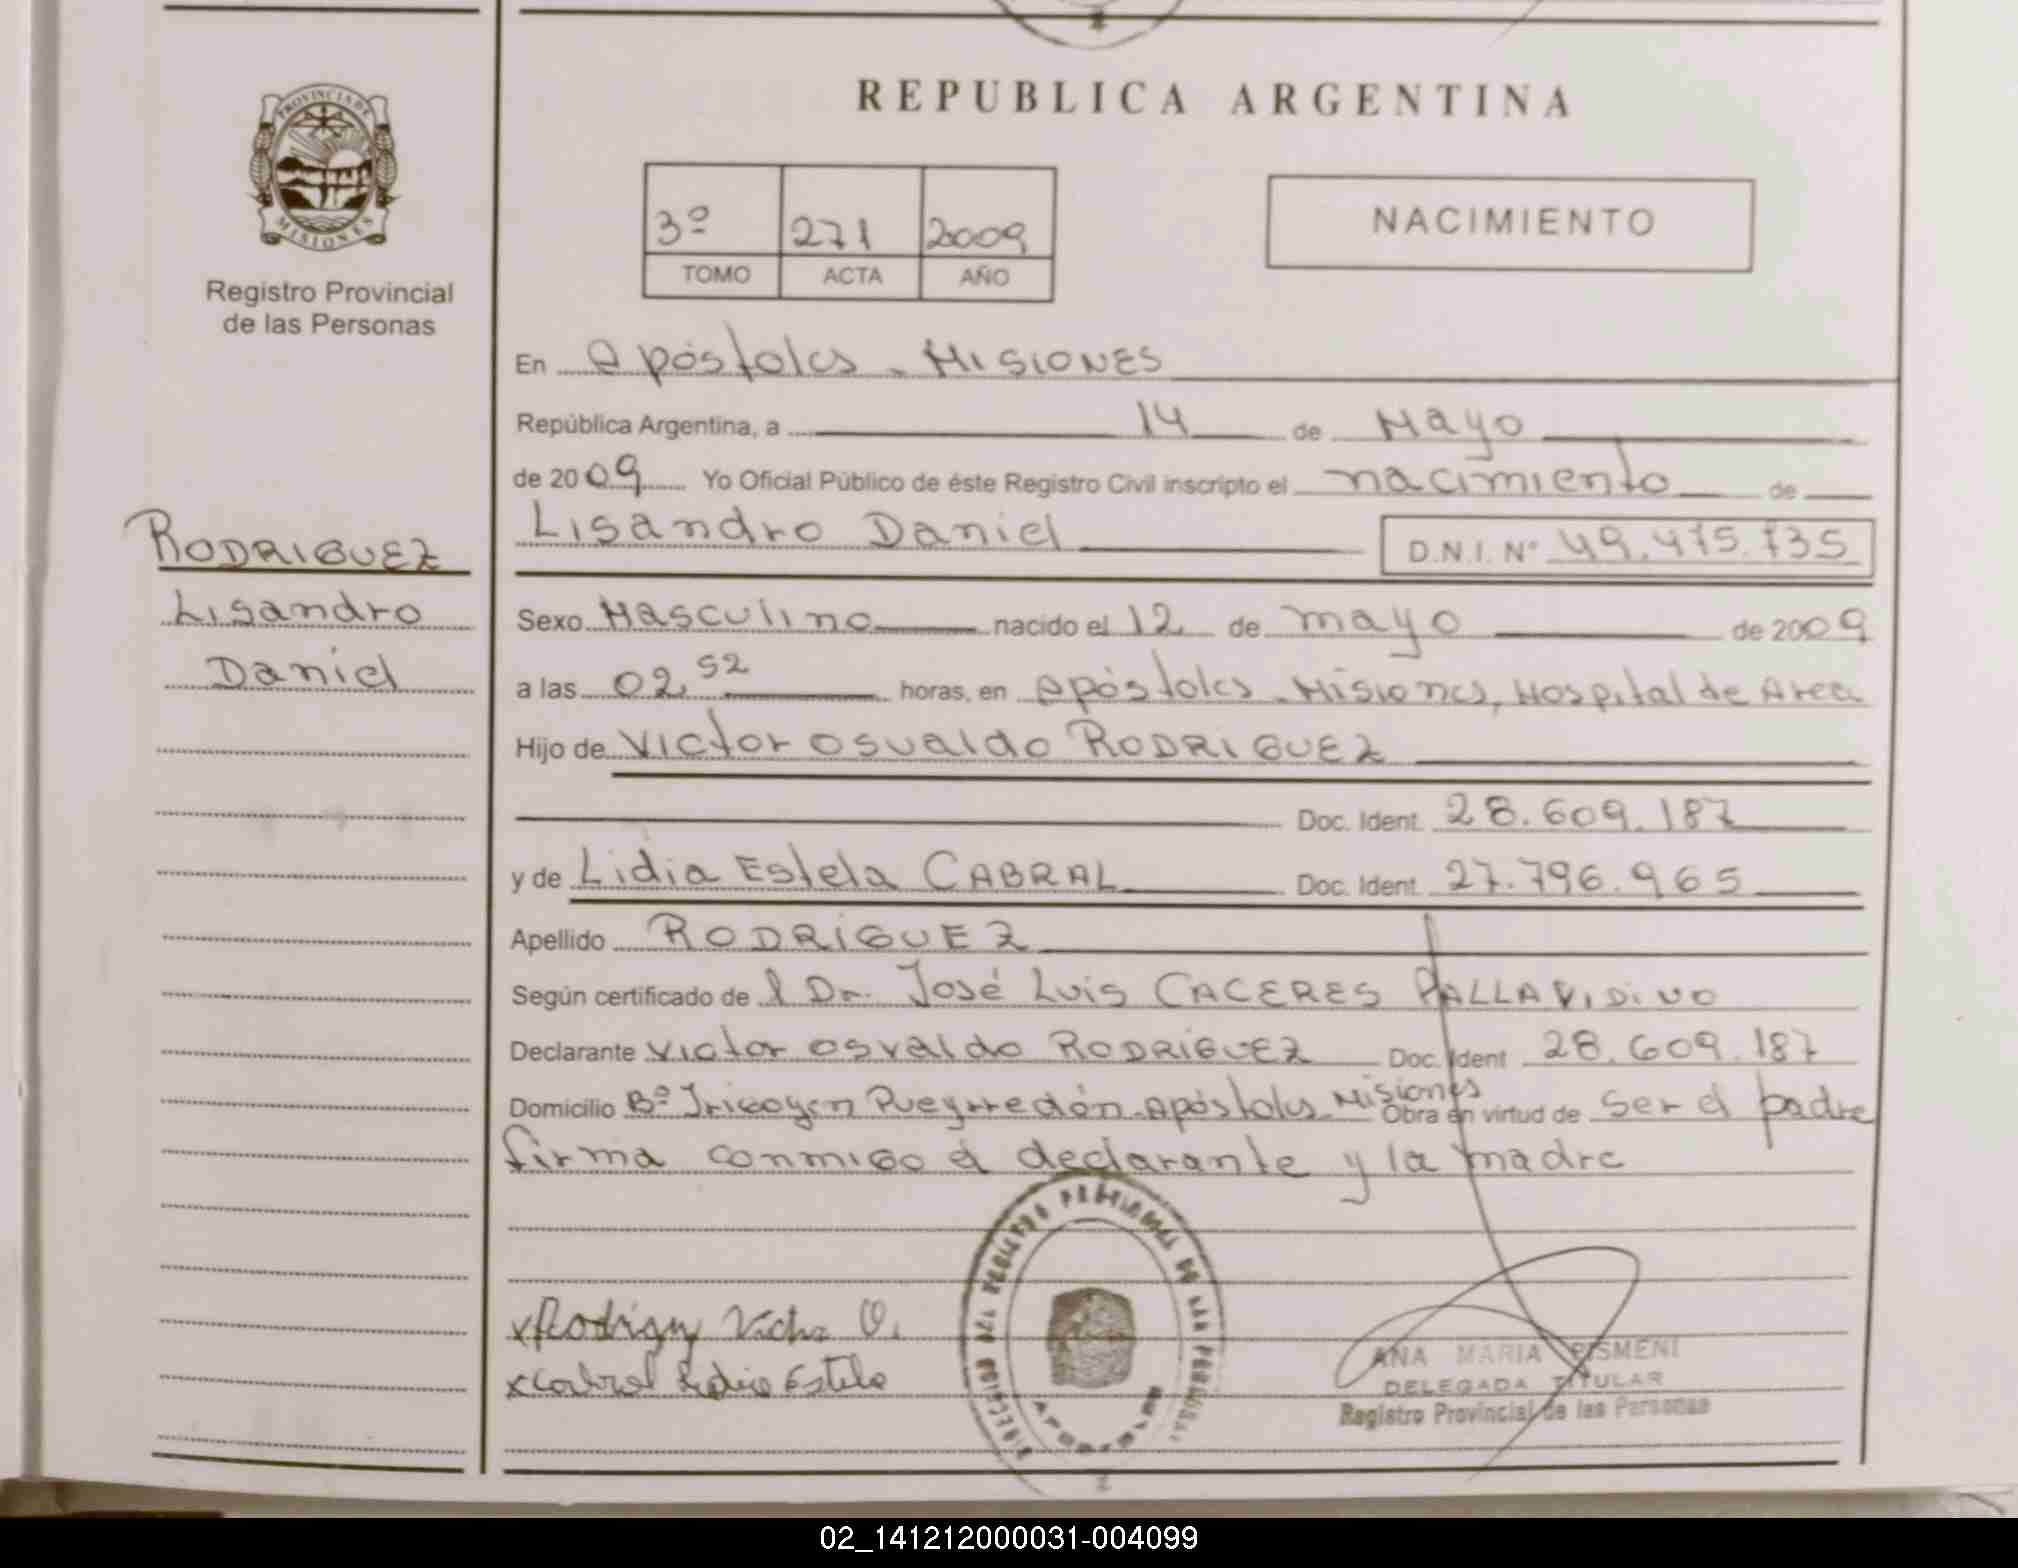 PROVINCIA DE
MISIONES
Registro Provincial
de las Personas
RODRIGUEZ
Lisandro
Daniel
REPUBLICA ARGENTINA
3º 271 2009
TOMO ACTA AÑO
NACIMIENTO
En Apóstoles - MISIONES
República Argentina, a 14 de Mayo
de 2009 Yo Oficial Público de éste Registro Civil inscripto el nacimiento de
Lisandro Daniel D.N.I. Nº 49.475.735
Sexo Masculino nacido el 12 de mayo de 2009
a las 02,52 horas, en Apóstoles - Misiones, Hospital de Area
Hijo de Victor Osvaldo RODRIGUEZ
Doc. Ident. 28.609.187
y de Lidia Estela CABRAL Doc. Ident. 27.796.965
Apellido RODRIGUEZ
Según certificado de l Dr. José Luis CACERES PALLAVIDINO
Declarante Victor Osvaldo RODRIGUEZ Doc. Ident 28.609.187
Domicilio Bº Irigoyen Pueyrredón - Apóstoles Misiones Obra en virtud de ser el padre
firma conmigo el declarante y la madre
x Rodriguez Victor O.
x Cabral Lidia Estela
ANA MARIA PISMENI
DELEGADA TITULAR
Registro Provincial de las Personas
02_141212000031-004099